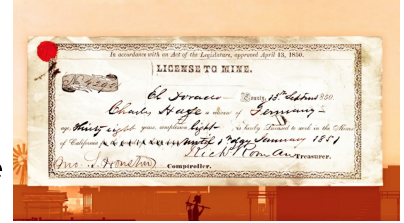 In accordance with an Act of the Legislature, approved April 13, 1850.
LICENSE TO MINE.
No. 4293
El Dorado County, 18th Septemr 1850.
Charles Hage a citizen of Germany
age thirty eight years, complexion light is hereby licensed to work in the Mines
of California until 1st day January 1851
Richd Roman Treasurer.
Jno. S. Houston Comptroller.
e